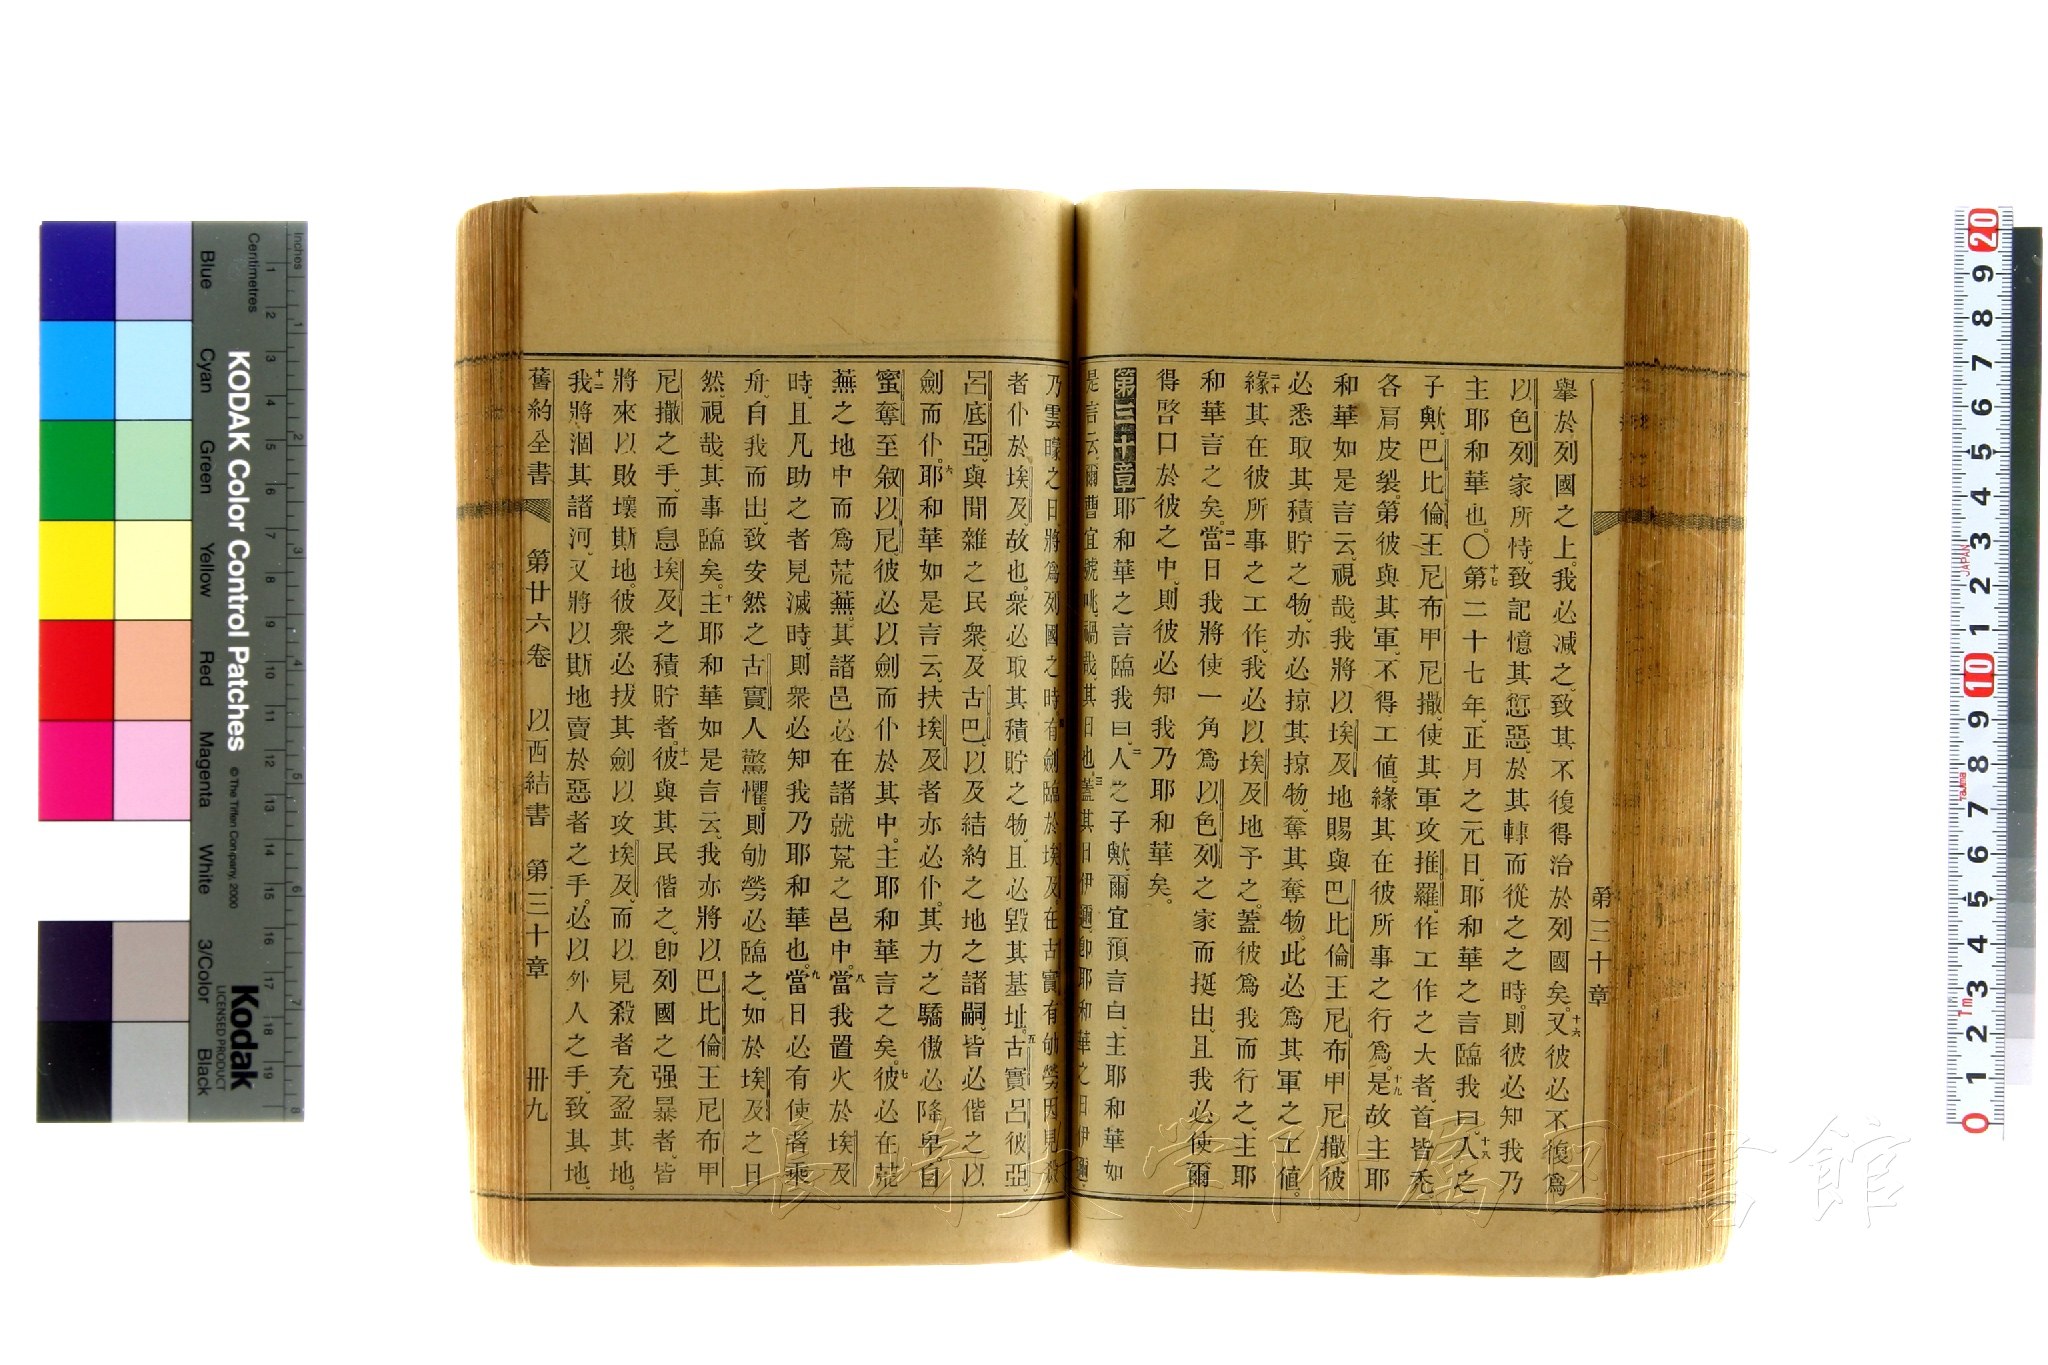 第三十章
擧於列國之上。我必減之、致其不復得治於列國矣。十六又彼必不復爲
以色列家所恃、致記憶其愆惡、於其轉而從之之時。則彼必知我乃
主耶和華也。〇十七第二十七年、正月之元日、耶和華之言臨我曰、十八人之
子歟、巴比倫王尼布甲尼撒、使其軍攻推羅、作工作之大者、首皆禿、
各肩皮㓨。第彼與其軍、不得工値、緣其在彼所事之行爲。十九是故主耶
和華如是言云、視哉、我將以埃及地賜與巴比倫王尼布甲尼撒、彼
必悉取其積貯之物、亦必掠其掠物、奪其奪物。此必爲其軍之工値。
二十緣其在彼所事之工作、我必以埃及地予之。蓋彼爲我而行之、主耶
和華言之矣。二一當日我將使一角爲以色列之家而挺出、且我必使爾
得啓口於彼之中、則彼必知我乃耶和華矣。
第三十章 一耶和華之言臨我曰、二人之子歟、爾宜預言白、主耶和華如
是言云、爾曹宜號咷、禍哉、其日也。三蓋其日伊邇、卽耶和華之日伊邇、
乃雲曚之日、將爲列國之時。四有劍臨於埃及、在古實有劬勞、因見殺
者仆於埃及、故也。衆必取其積貯之物、且必毀其基址。五古實呂彼亞、
呂底亞、與間雜之民衆、及古巴、以及結約之地之諸嗣、皆必偕之以
劍而仆。六耶和華如是言云、扶埃及者亦必仆。其力之驕傲必降卑。自
蜜奪至敍以尼、彼必以劍而仆於其中。主耶和華言之矣。七彼必在荒
蕪之地中而爲荒蕪。其諸邑必在諸就荒之邑中。八當我置火於埃及
時、且凡助之者見滅時、則衆必知我乃耶和華也。九當日必有使者乘
舟、自我而出、致安然之古實人驚懼。則劬勞必臨之、如於埃及之日
然、視哉、其事臨矣。十主耶和華如是言云、我亦將以巴比倫王尼布甲
尼撒之手、而息埃及之積貯者。十一彼與其民偕之、卽列國之强暴者、皆
將來以敗壞斯地。彼衆必拔其劍以攻埃及、而以見殺者充盈其地。
十二我將涸其諸河、又將以斯地賣於惡者之手。必以外人之手、致其地
舊約全書 第廿六卷 以西結書 第三十章 卌九
KODAK Color Control Patches
© The Tiffen Company, 2000
Kodak
LICENSED PRODUCT
Inches
Centimetres
Blue Cyan Green Yellow Red Magenta White 3/Color Black
JAPAN
Tajima
長崎大学附属図書館